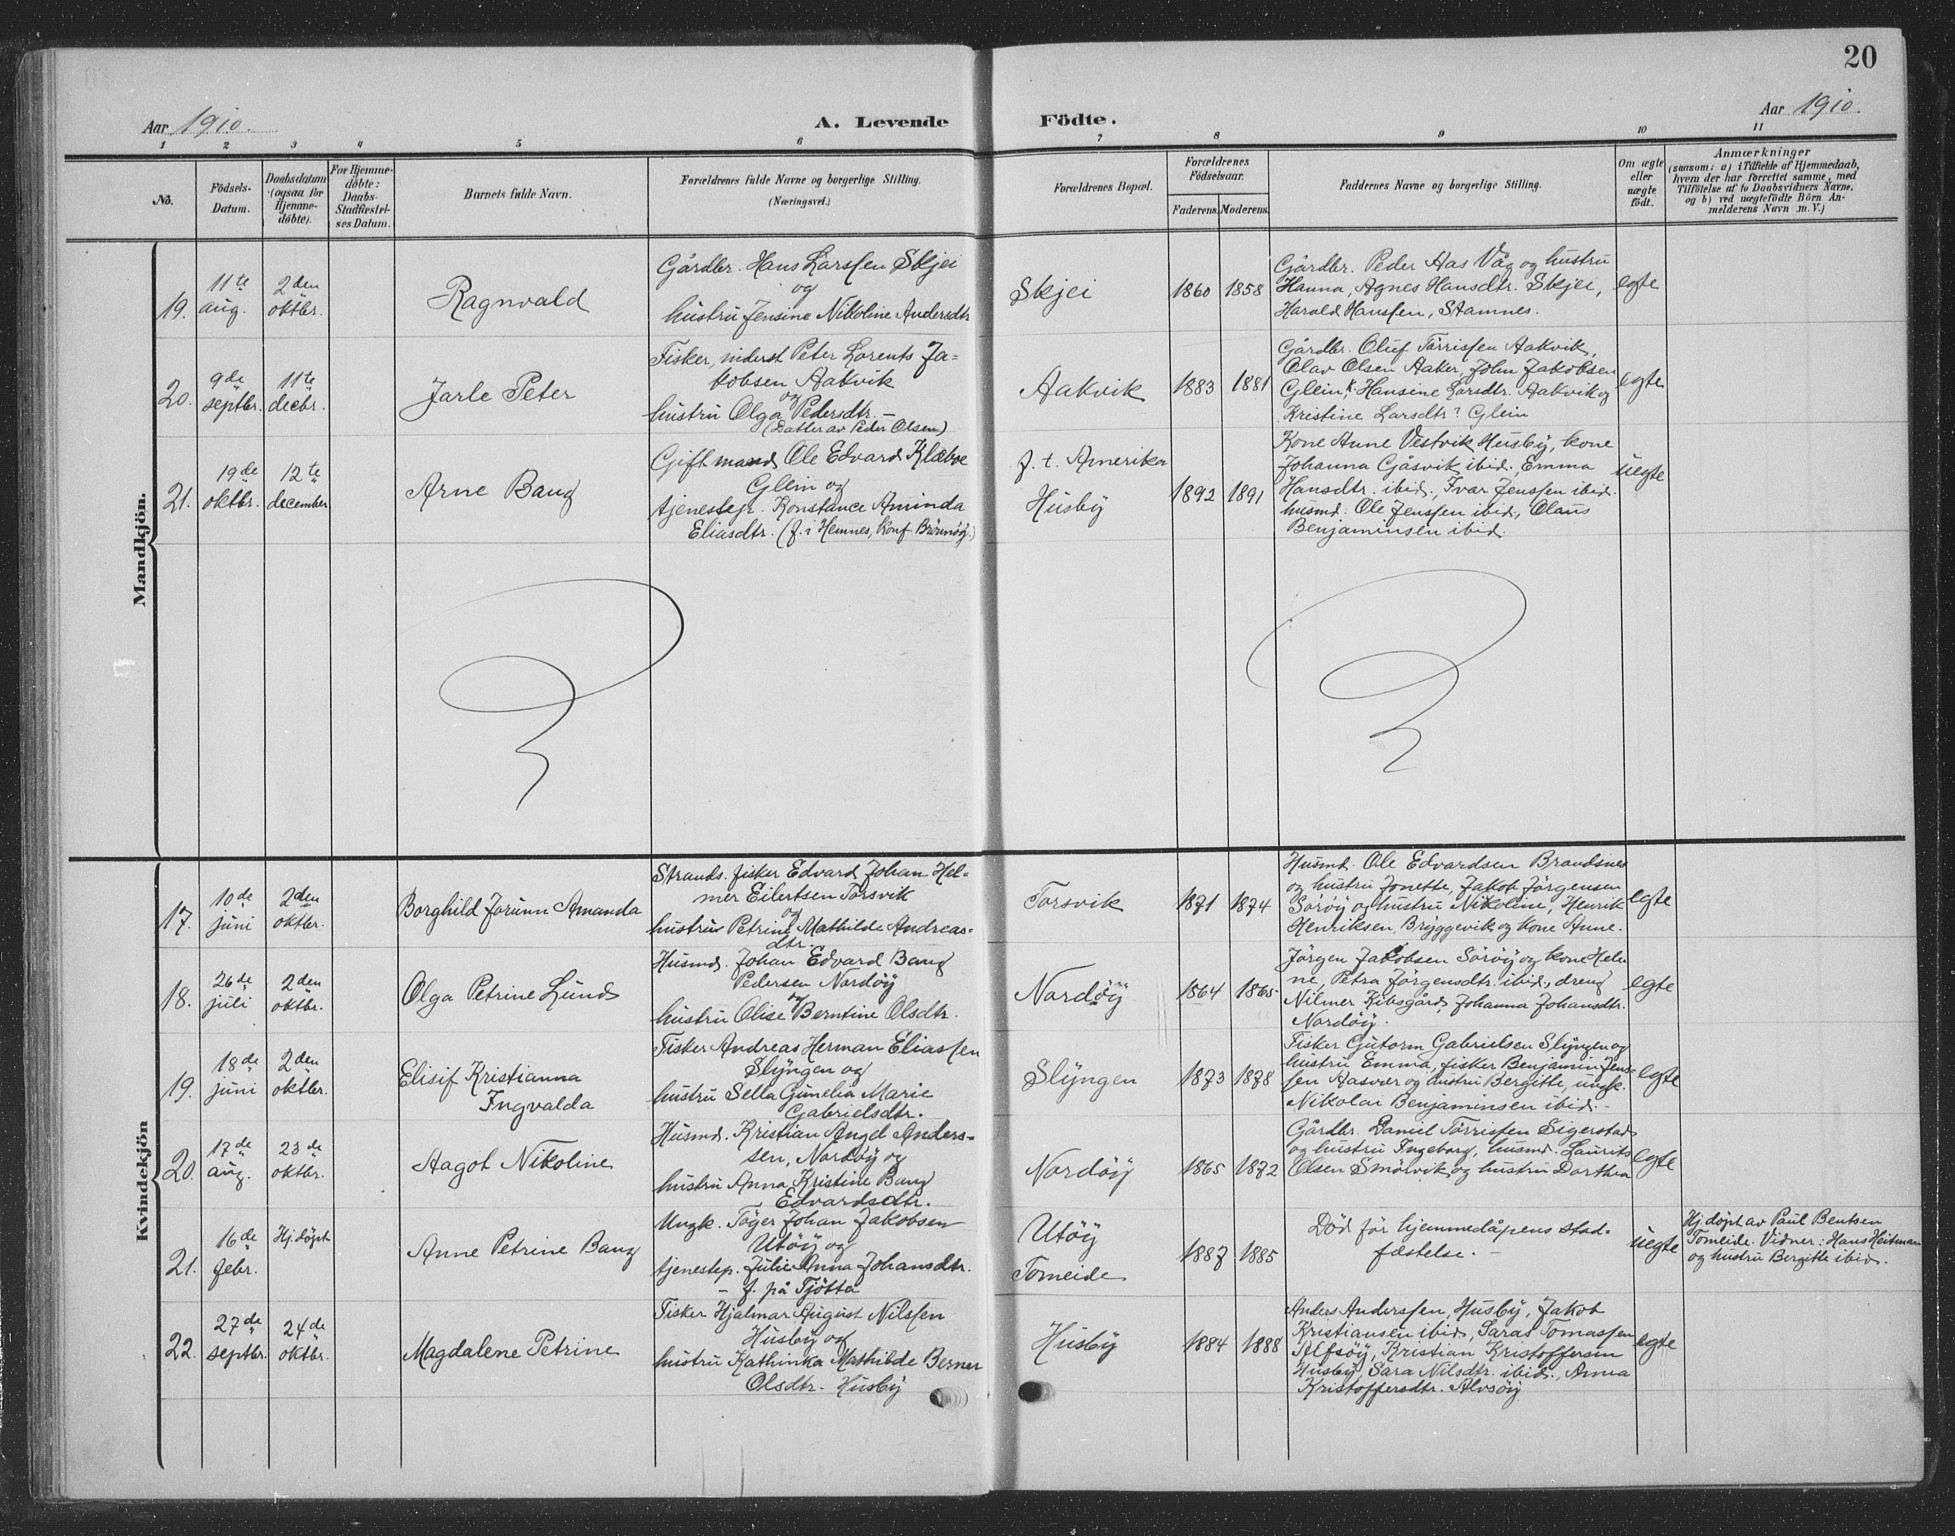 20
Aar 1910.
A. Levende Födte.
Aar 1910.
1 2 3 4 5 6 7 8 9 10 11
No.
Födsels-
Datum.
Daabsdatum
(ogsaa for
Hjemme-
döbte).
For Hjemme-
döbte:
Daabs-
Stadfæstel-
ses Datum.
Barnets fulde Navn.
Forældrenes fulde Navne og borgerlige Stilling.
(Næringsvei.)
Forældrenes Bopæl.
Forældrenes
Födselsaar.
Faderens. Moderens.
Faddernes Navne og borgerlige Stilling.
Om ægte
eller
uægte
født.
Anmærkninger
(saasom: a) i Tilfælde af Hjemmedaab,
hvem der har forrettet samme, med
Tilföielse af to Daabsvidners Navne,
og b) ved uægtefödte Börn An-
melderens Navn m. V.)
Mandkjön.
19.
11te
aug.
2den
oktbr.
Ragnvald
Gårdbr. Hans Larssen Skjei
og
hustru Jensine Nikoline Andersdtr
Skjei
1860 1858
Gårdbr. Peder Aas Våg og hustru
Hanna, Agnes Hansdtr. Skjei,
Harald Hanssen, Stamnes.
egte
20.
9de
septbr.
11te
decbr.
Jarle Peter
Fisker, inderst Peter Lorents Ja-
kobsen Aakvik
og
hustru Olga Pedersdtr. –
(Datter av Peder Olsen)
Aakvik
1883 1881
Gårdbr. Oluf Törrissen Aakvik,
Olav Olsen Aaker, John Jakobsen
Glein, k. Hansine Larsdtr. Aakvik og
Kristine Larsdtr? Glein
egte
21.
19de
oktbr.
12te
december
Arne Bang
Gift mand Ole Edvard Klæboe
Glein og
tjenestepr. Konstance Aminda
Eliasdtr. (f. i Hemnes, konf. Brönnöy.)
f. t. Amerika
Husby
1892 1891
Kone Anne Vestvik Husby, kone
Johanna Gåsvik ibid. Emma
Hansdtr. ibid., Ivar Jenssen ibid.
husmd. Ole Jenssen ibid., Olaus
Benjaminsen ibid.
uegte
Kvindekjön
17.
10de
juni
2den
oktbr.
Borghild Jorunn Amanda
Strands. fisker Edvard Johan Hel-
mer Eilertsen Torsvik
og
hustru Petrine Mathilde Andreas-
dtr.
Torsvik
1871 1874
Husmd. Ole Edvardsen Brandsnes
og hustru Jonette, Jakob Jörgensen
Sörøy og hustru Nikoline, Henrik
Henriksen, Bryggevik og kone Anne.
egte
18.
26de
juli
2den
oktbr.
Olga Petrine Lund
Husmd. Johan Edvard Bang
Pedersen Nordöy
og
hustru Olise Berntine Olsdtr.
Nordöy
1864 1865
Jörgen Jakobsen Sörøy og kone Hele-
ne, Petra Jörgensdtr. ibid., dreng
Nilmer Kibsgård, Johanna Johansdtr.
Nordöy.
egte
19.
18de
juni
2den
oktbr.
Elisif Kristianna
Ingvalda
Fisker Andreas Herman Eliassen
Slyngen og
hustru Sella Gunelia Marie
Gabrielsdtr.
Slyngen
1873 1878
Fisker Gutorm Gabrielsen Slyngen og
hustru Emma, fisker Benjamin Jens-
sen Aasvær og hustru Bergitte, ungk.
Nikolai Benjaminsen ibid. –
egte
20.
17de
aug.
23de
oktbr.
Aagot Nikoline
Husmd. Kristian Angel Anders-
sen, Nordöy og
hustru Anna Kristine Bang
Edvardsdtr.
Nordöy
1865 1872
Gårdbr. Daniel Törrissen Seigerstad
og hustru Ingeborg, husmd. Laurits
Olsen Smörvik og hustru Dorthea
egte
21.
16de
febr.
Hj. døpt
Anne Petrine Bang
Ungk. Töger Johan Jakobsen
Utöy og
tjenestep. Julie Anna Johansdtr.
– f. på Tjötta
Utöy
Tomeide
1887 1885
Död før hjemmedåpens stad-
fæstelse. –
uegte
Hj. døpt av Paul Bentsen
Tomeide. Vidner: Hans Heitman
og hustru Bergitte ibid.
22.
27de
septbr.
24de
oktbr.
Magdalene Petrine
Fisker Hjalmar August Nilssen
Husby og
hustru Kathinka Mathilde Berner
Olsdtr. Husby
Husby
1884 1888
Anders Anderssen, Husby, Jakob
Kristiansen ibid, Saras Tomassen
Alfsöy, Kristian Kristoffersen
Husby, Sara Nilsdtr. ibid., Anna
Kristoffersdtr. Alvsöy
egte